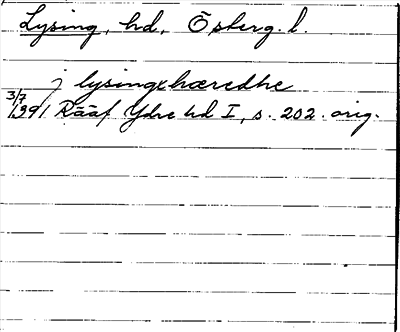 Lysing, hd, Ösberg. l.
j lysingxhæredhe
3/7 1391 Rääf Ydre hd I, s. 202. orig.